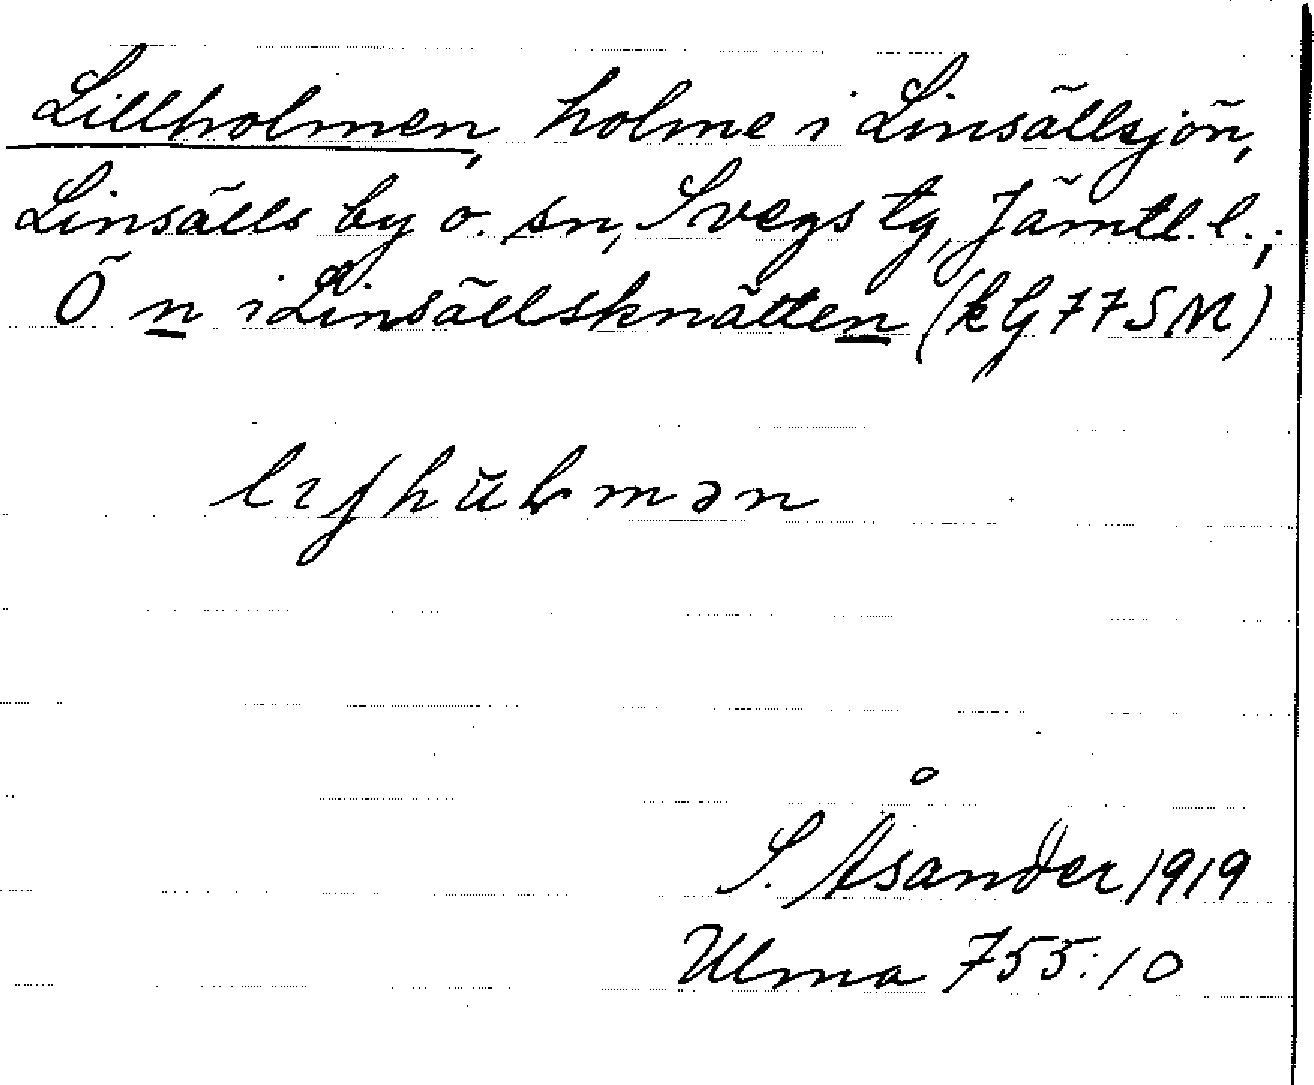 Lillholmen, holme i Linsällsjön,
Linsälls by o. sn, Svegs tg, Jämtl. l.;
Ö n i Linsällsknätten (kG 77 SM)
S. Åsander 1919
Ulma 755:10